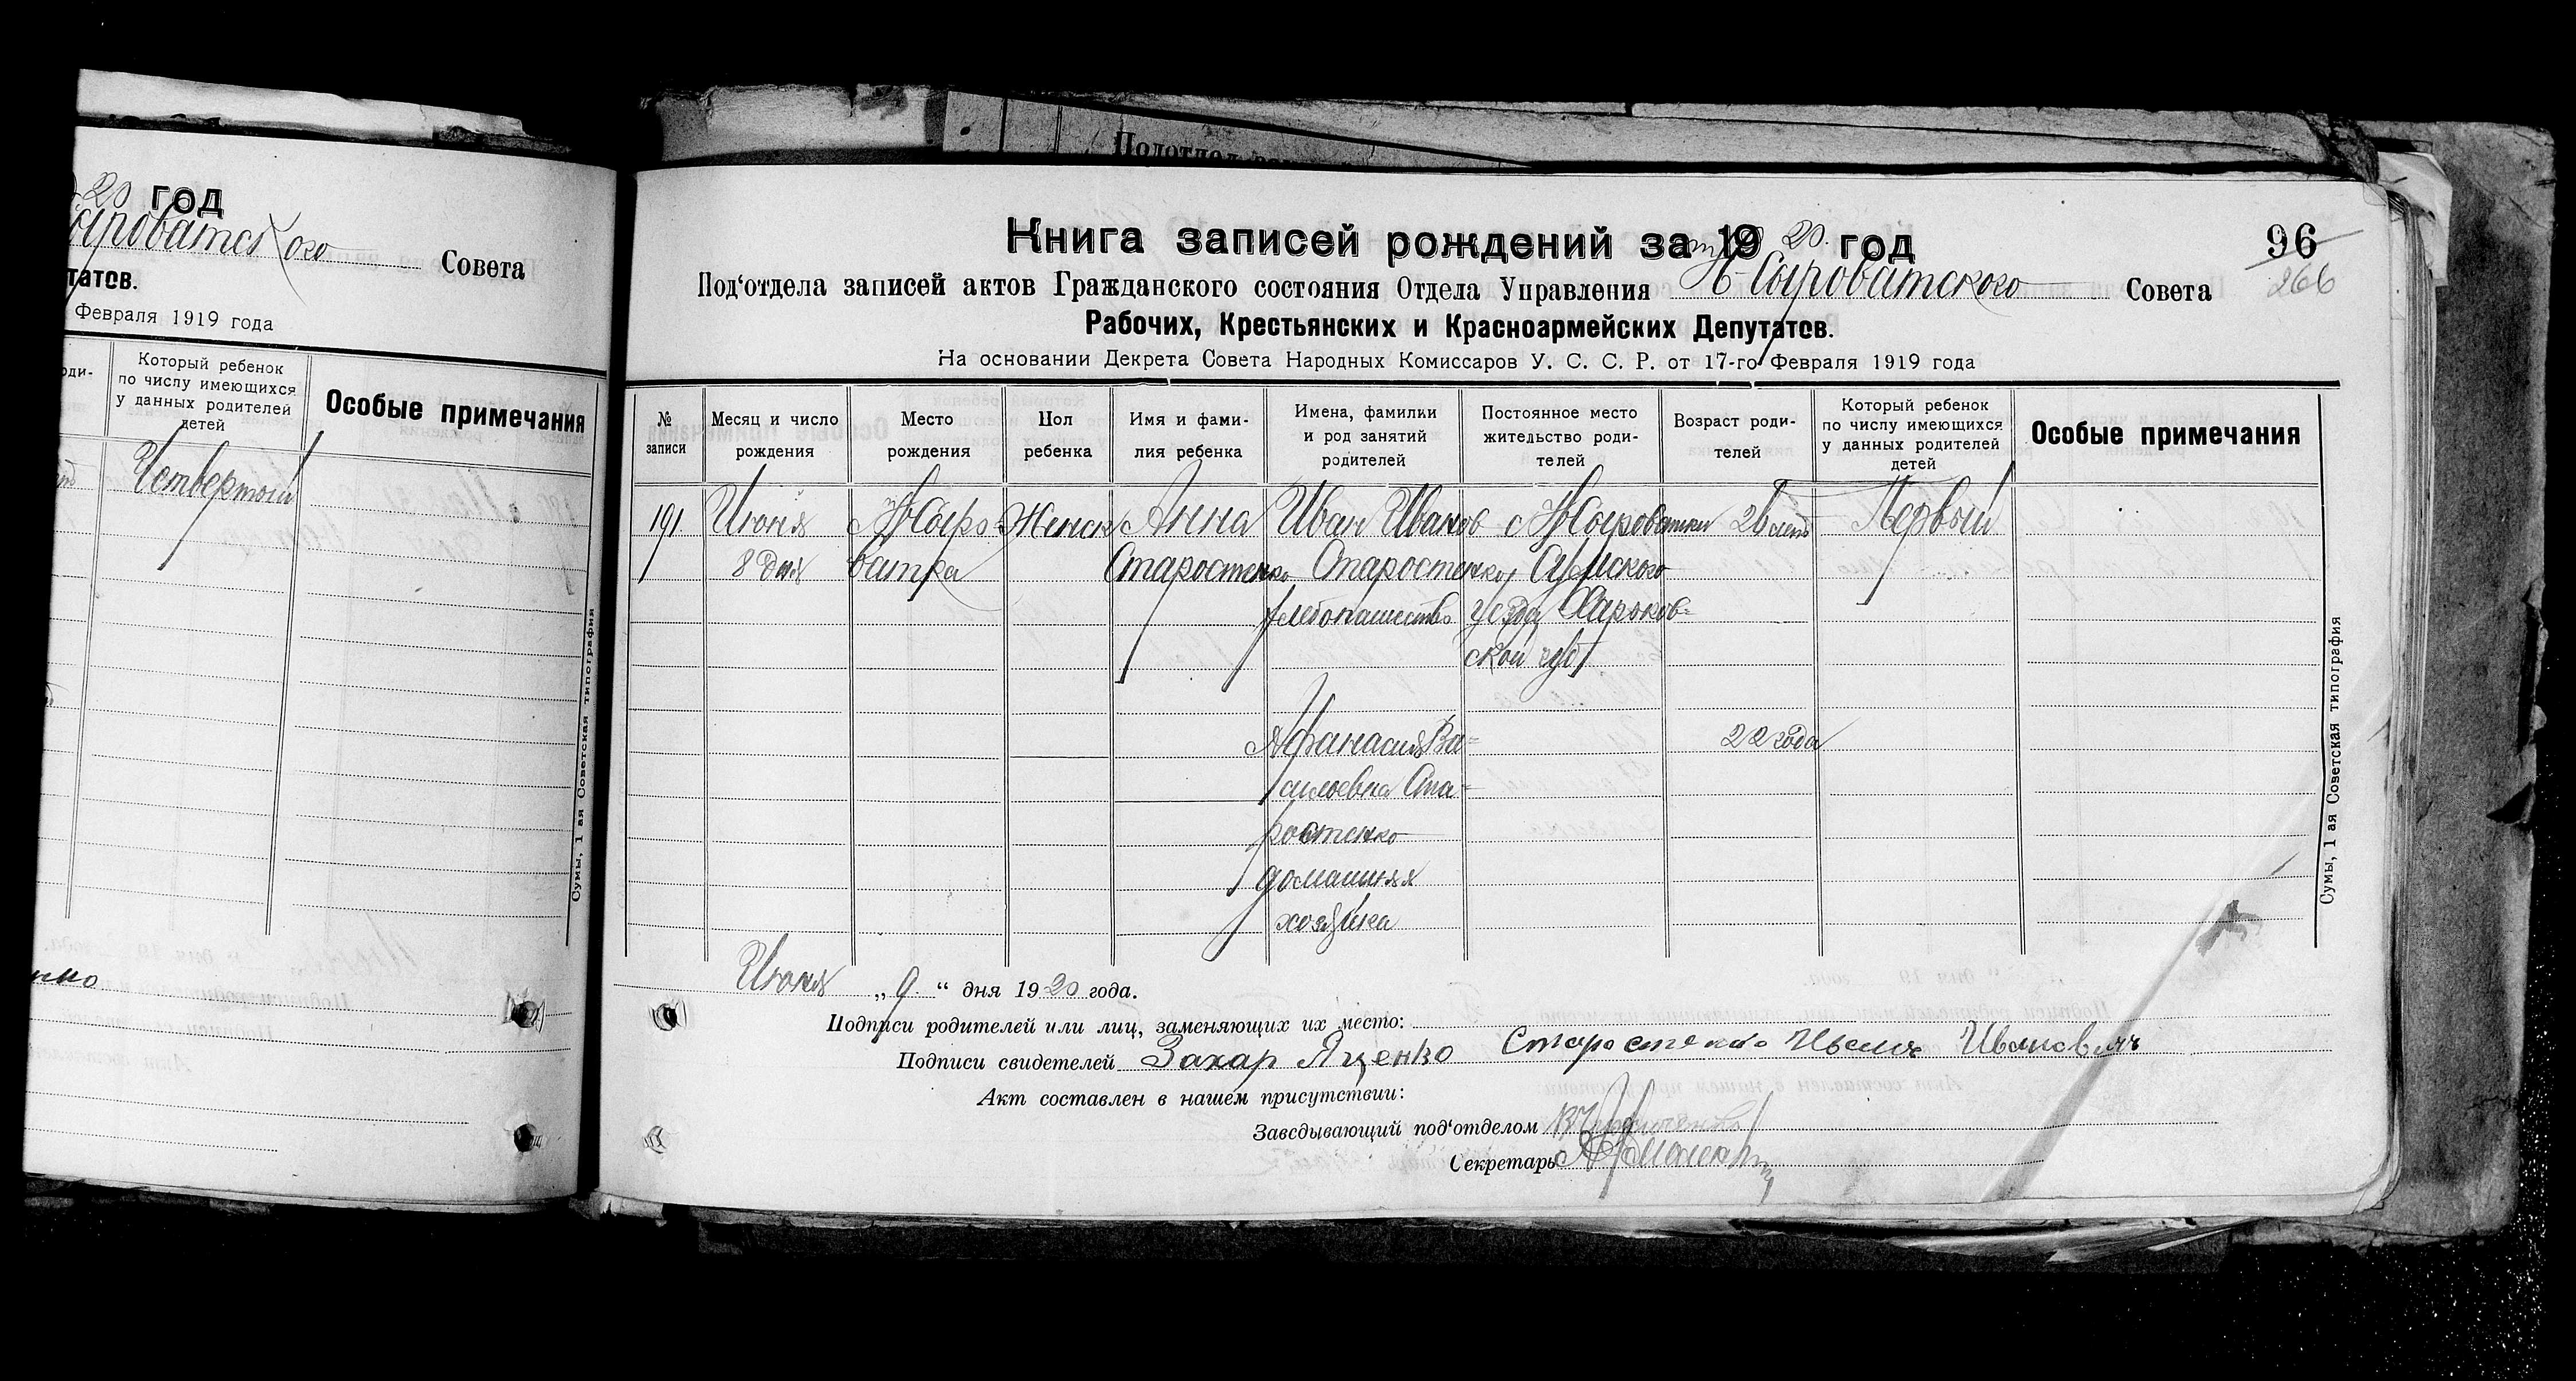 20 год
Сыроватского Совета
татов.
Февраля 1919 года
оди-
Который ребенок
по числу имеющихся
у данных родителей
детей
Особые примечания
Четвертый
Сумы, 1 ая Советская типография
Подотдел
Книга записей рождений за 1920 год
96
266
Под‘отдела записей актов Гражданского состояния Отдела Управления Н-Сыроватского Совета
Рабочих, Крестьянских и Красноармейских Депутатов.
На основании Декрета Совета Народных Комиссаров У. С. С. Р. от 17-го Февраля 1919 года
№
записи
Месяц и число
рождения
Место
рождения
Пол
ребенка
Имя и фами-
лия ребенка
Имена, фамилии
и род занятий
родителей
Постоянное место
жительство роди-
телей
Возраст роди-
телей
Который ребенок
по числу имеющихся
у данных родителей
детей
Особые примечания
191
Июня
8 дня
с Н Сыро-
ватка
Женск
Анна
Старостенко
Иван Иванов
Старостенко,
хлебопашество
Афанасия Ва-
сильевна Ста-
ростенко
домашняя
хозяйка
с Н Сыроватки
Сумского
уезда Харьков-
ской губ
26 лет
22 года
Первый
Июня „9“ дня 1920 года.
Подписи родителей или лиц, заменяющих их место:
Старостенко Иван Иванович
Подписи свидетелей Захар Яценко
Акт составлен в нашем присутствии:
Заведывающий под‘отделом
Секретарь
Сумы, 1 ая Советская типография